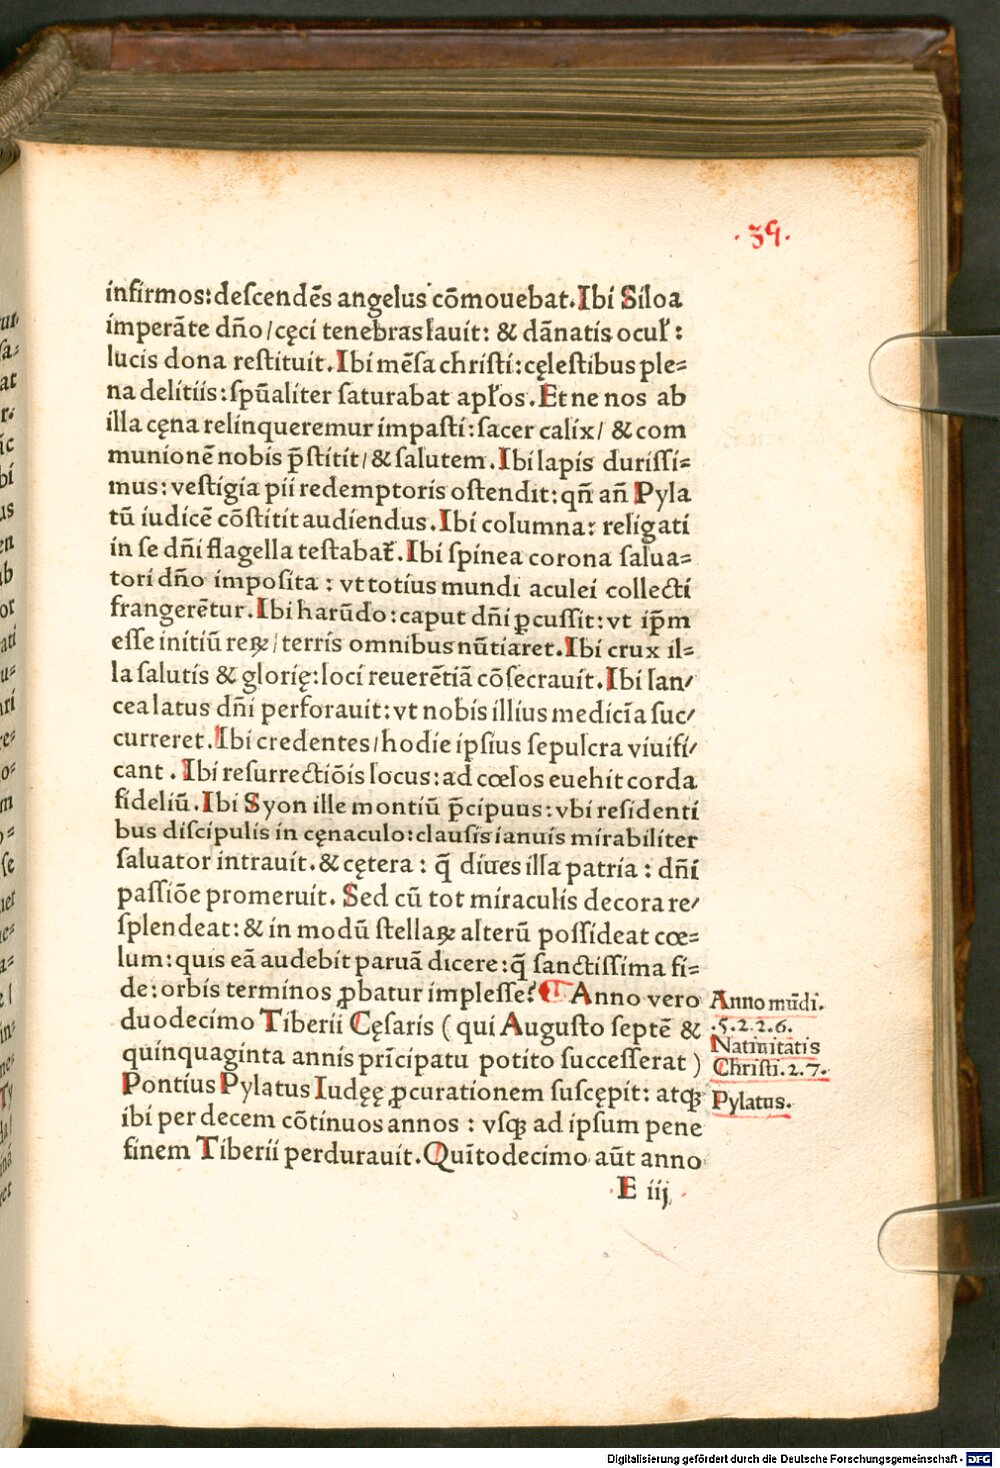 .39.
infirmos:deſcendēs angelus cōmouebat.Ibi Siloa
imperāte dño/cęci tenebras lauit: & dānatis ocul̛:
lucis dona reſtituit.Ibi mēſa chriſti:cęleſtibus ple=
na delitiis:ſpūaliter ſaturabat apl̛os.Et ne nos ab
illa cęna relinqueremur impaſti:ſacer calix/ & com
munionē nobis p̄ſtitit/& ſalutem.Ibi lapis duriſſi=
mus:veſtigia pii redemptoris oſtendit:qñ añ Pyla
tū iudicē cōſtitit audiendus.Ibi columna: religati
in ſe dñi flagella teſtabat̛.Ibi ſpinea corona ſalua=
tori dño impoſita : vt totius mundi aculei collecti
frangerētur.Ibi harūdo:caput dñi ꝑcuſſit:vt ip̄m
eſſe initiū reꝝ/terris omnibus nūtiaret.Ibi crux il=
la ſalutis & glorię:loci reuerētiā cōſecrauit.Ibi lan/
cea latus dñi perforauit:vt nobis illius mediciā ſuc/
curreret.Ibi credentes/hodie ipſius ſepulcra viuifi/
cant . Ibi reſurrectiōis locus:ad cœlos euehit corda
fideliū.Ibi Syon ille montiū p̄cipuus:vbi reſidenti
bus diſcipulis in cęnaculo:clauſis ianuis mirabiliter
ſaluator intrauit.& cętera : q̄ diues illa patria : dñi
paſſiōe promeruit. Sed cū tot miraculis decora re/
ſplendeat:& in modū ſtellaꝝ alterū poſſideat cœ=
lum:quis eā audebit paruā dicere:q̄ ſanctiſſima fi=
de:orbis terminos ꝓbatur impleſſe? ¶ Anno vero
duodecimo Tiberii Cęſaris ( qui Auguſto ſeptē &
quinquaginta annis prīcipatu potito ſucceſſerat )
Pontius Pylatus Iudęę ꝓcurationem ſuſcępit: atqꝫ
ibi per decem cōtinuos annos : vſqꝫ ad ipſum pene
finem Tiberii perdurauit.Quītodecimo aūt anno
Anno mūdi.
.5.2.2.6.
Natiuitatis
Chriſti.2.7.
Pylatus.
E iij
Digitalisierung gefördert durch die Deutsche Forschungsgemeinschaft - DFG